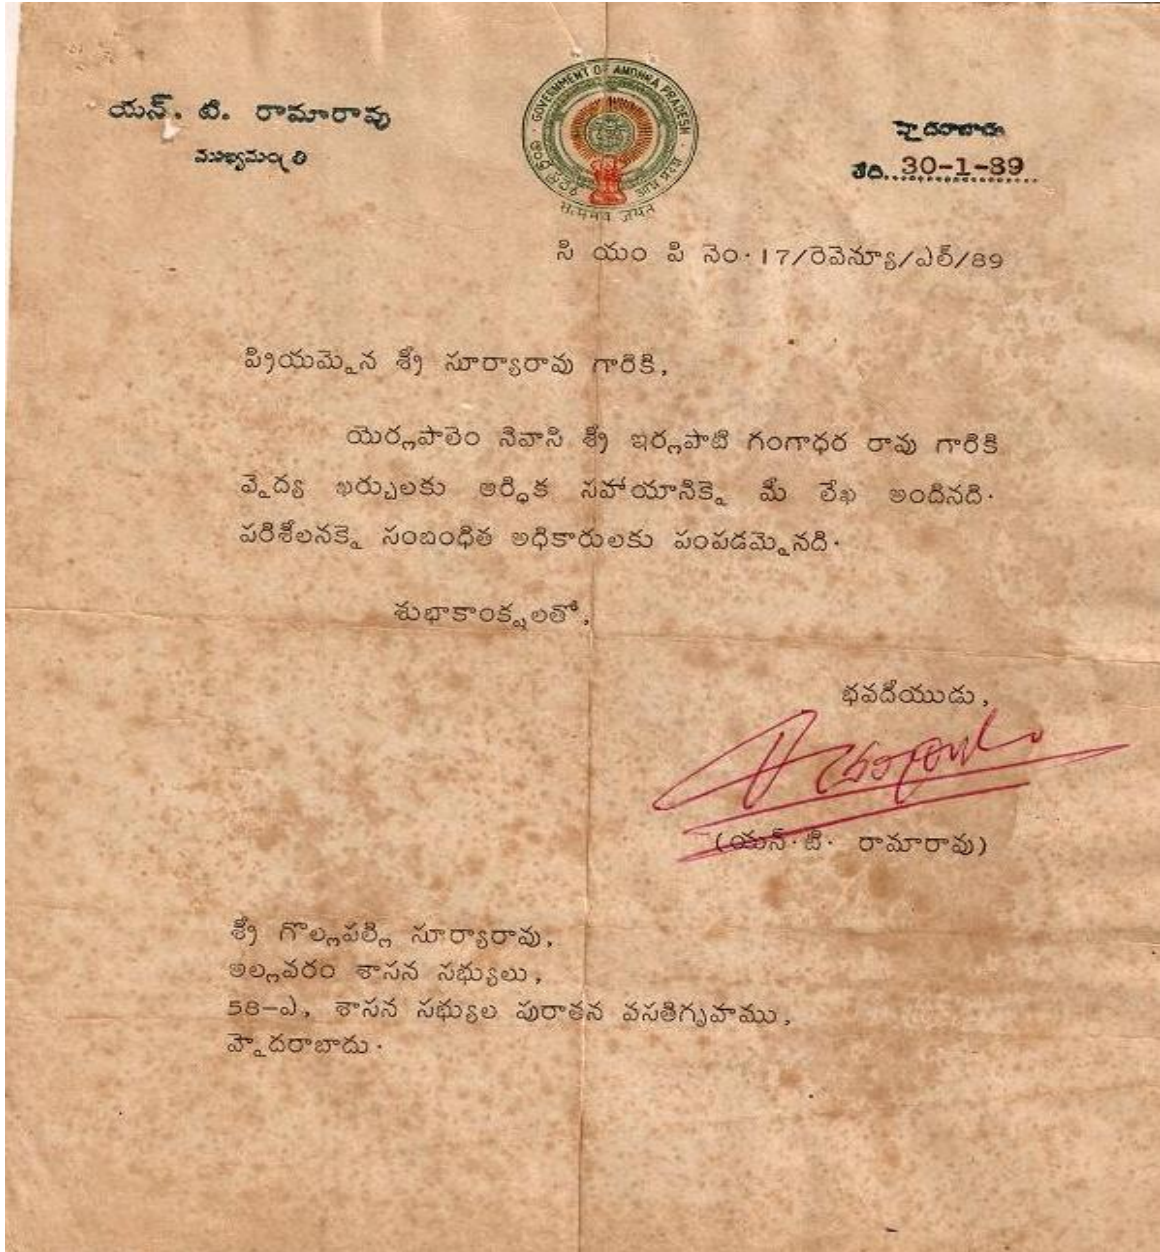 యన్. టి. రామారావు
ముఖ్యమంత్రి
GOVERNMENT OF ANDHRA PRADESH
ఆంధ్ర ప్రదేశ్
आन्ध्र प्रदेश
सत्यमेव जयते
హైదరాబాదు
తేది..30-1-89
సి యం పి నెం.17/రెవెన్యూ/ఎల్/89
ప్రియమైన శ్రీ సూర్యారావు గారికి,
యెర్లపాలెం నివాసి శ్రీ ఇర్లపాటి గంగాధర రావు గారికి
వైద్య ఖర్చులకు ఆర్ధిక సహాయానికై మీ లేఖ అందినది.
పరిశీలనకై సంబంధిత అధికారులకు పంపడమైనది.
శుభాకాంక్షలతో,
భవదీయుడు,
(యన్.టి. రామారావు)
శ్రీ గొల్లపల్లి సూర్యారావు,
అల్లవరం శాసన సభ్యులు,
58-ఎ, శాసన సభ్యుల పురాతన వసతిగృహము,
హైదరాబాదు.